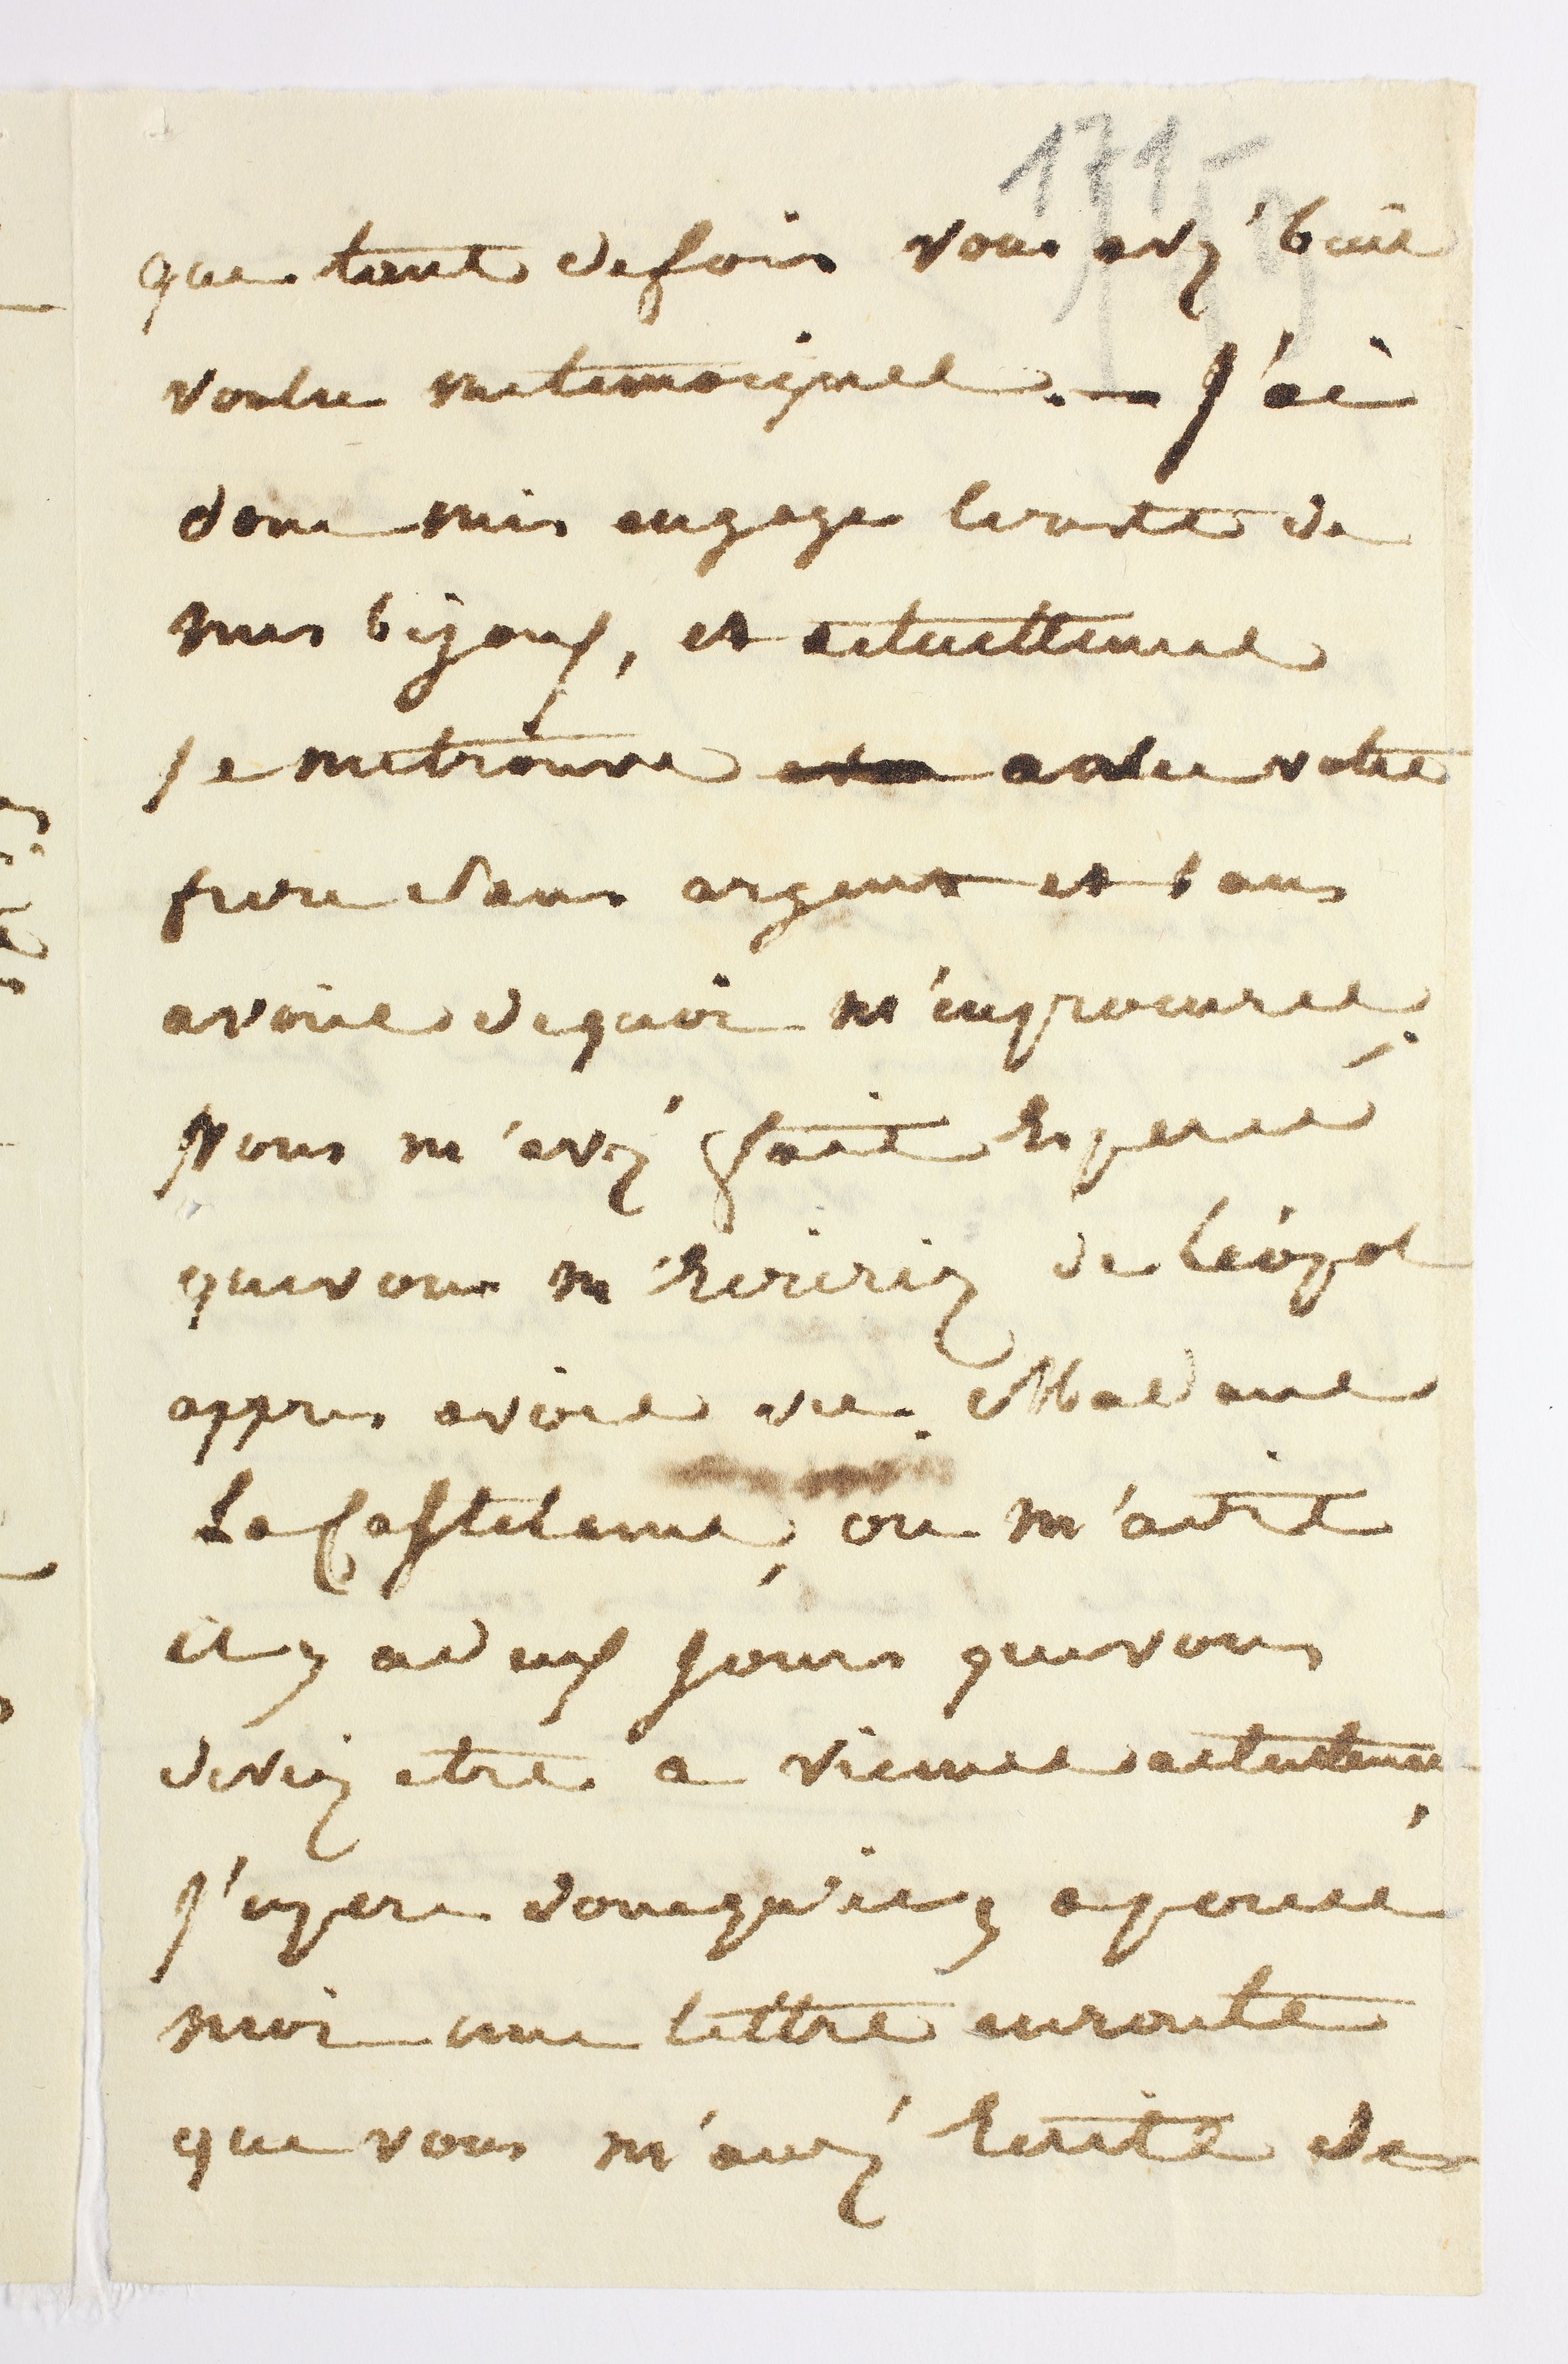 1715
que tant de fois vous avez' bien
voulu me temoigner. — J'ai
donc mis engage le reste de
mes bijoux, et actuellement
je me trouve avec votre
frere sans argent et sans
avoir dequoi m'en procurer.
Vous m'avez' fait Esperer
que vous m'Ecririez de Léopol
appres avoir vu Madame
La Castelane, on m'a dit
il y a deux jours que vous
deviez etre a Vienne actuelemen,
j'espere donc qu'il y a pour
moi une lettre en route
que vous m'avez' Ecrite de